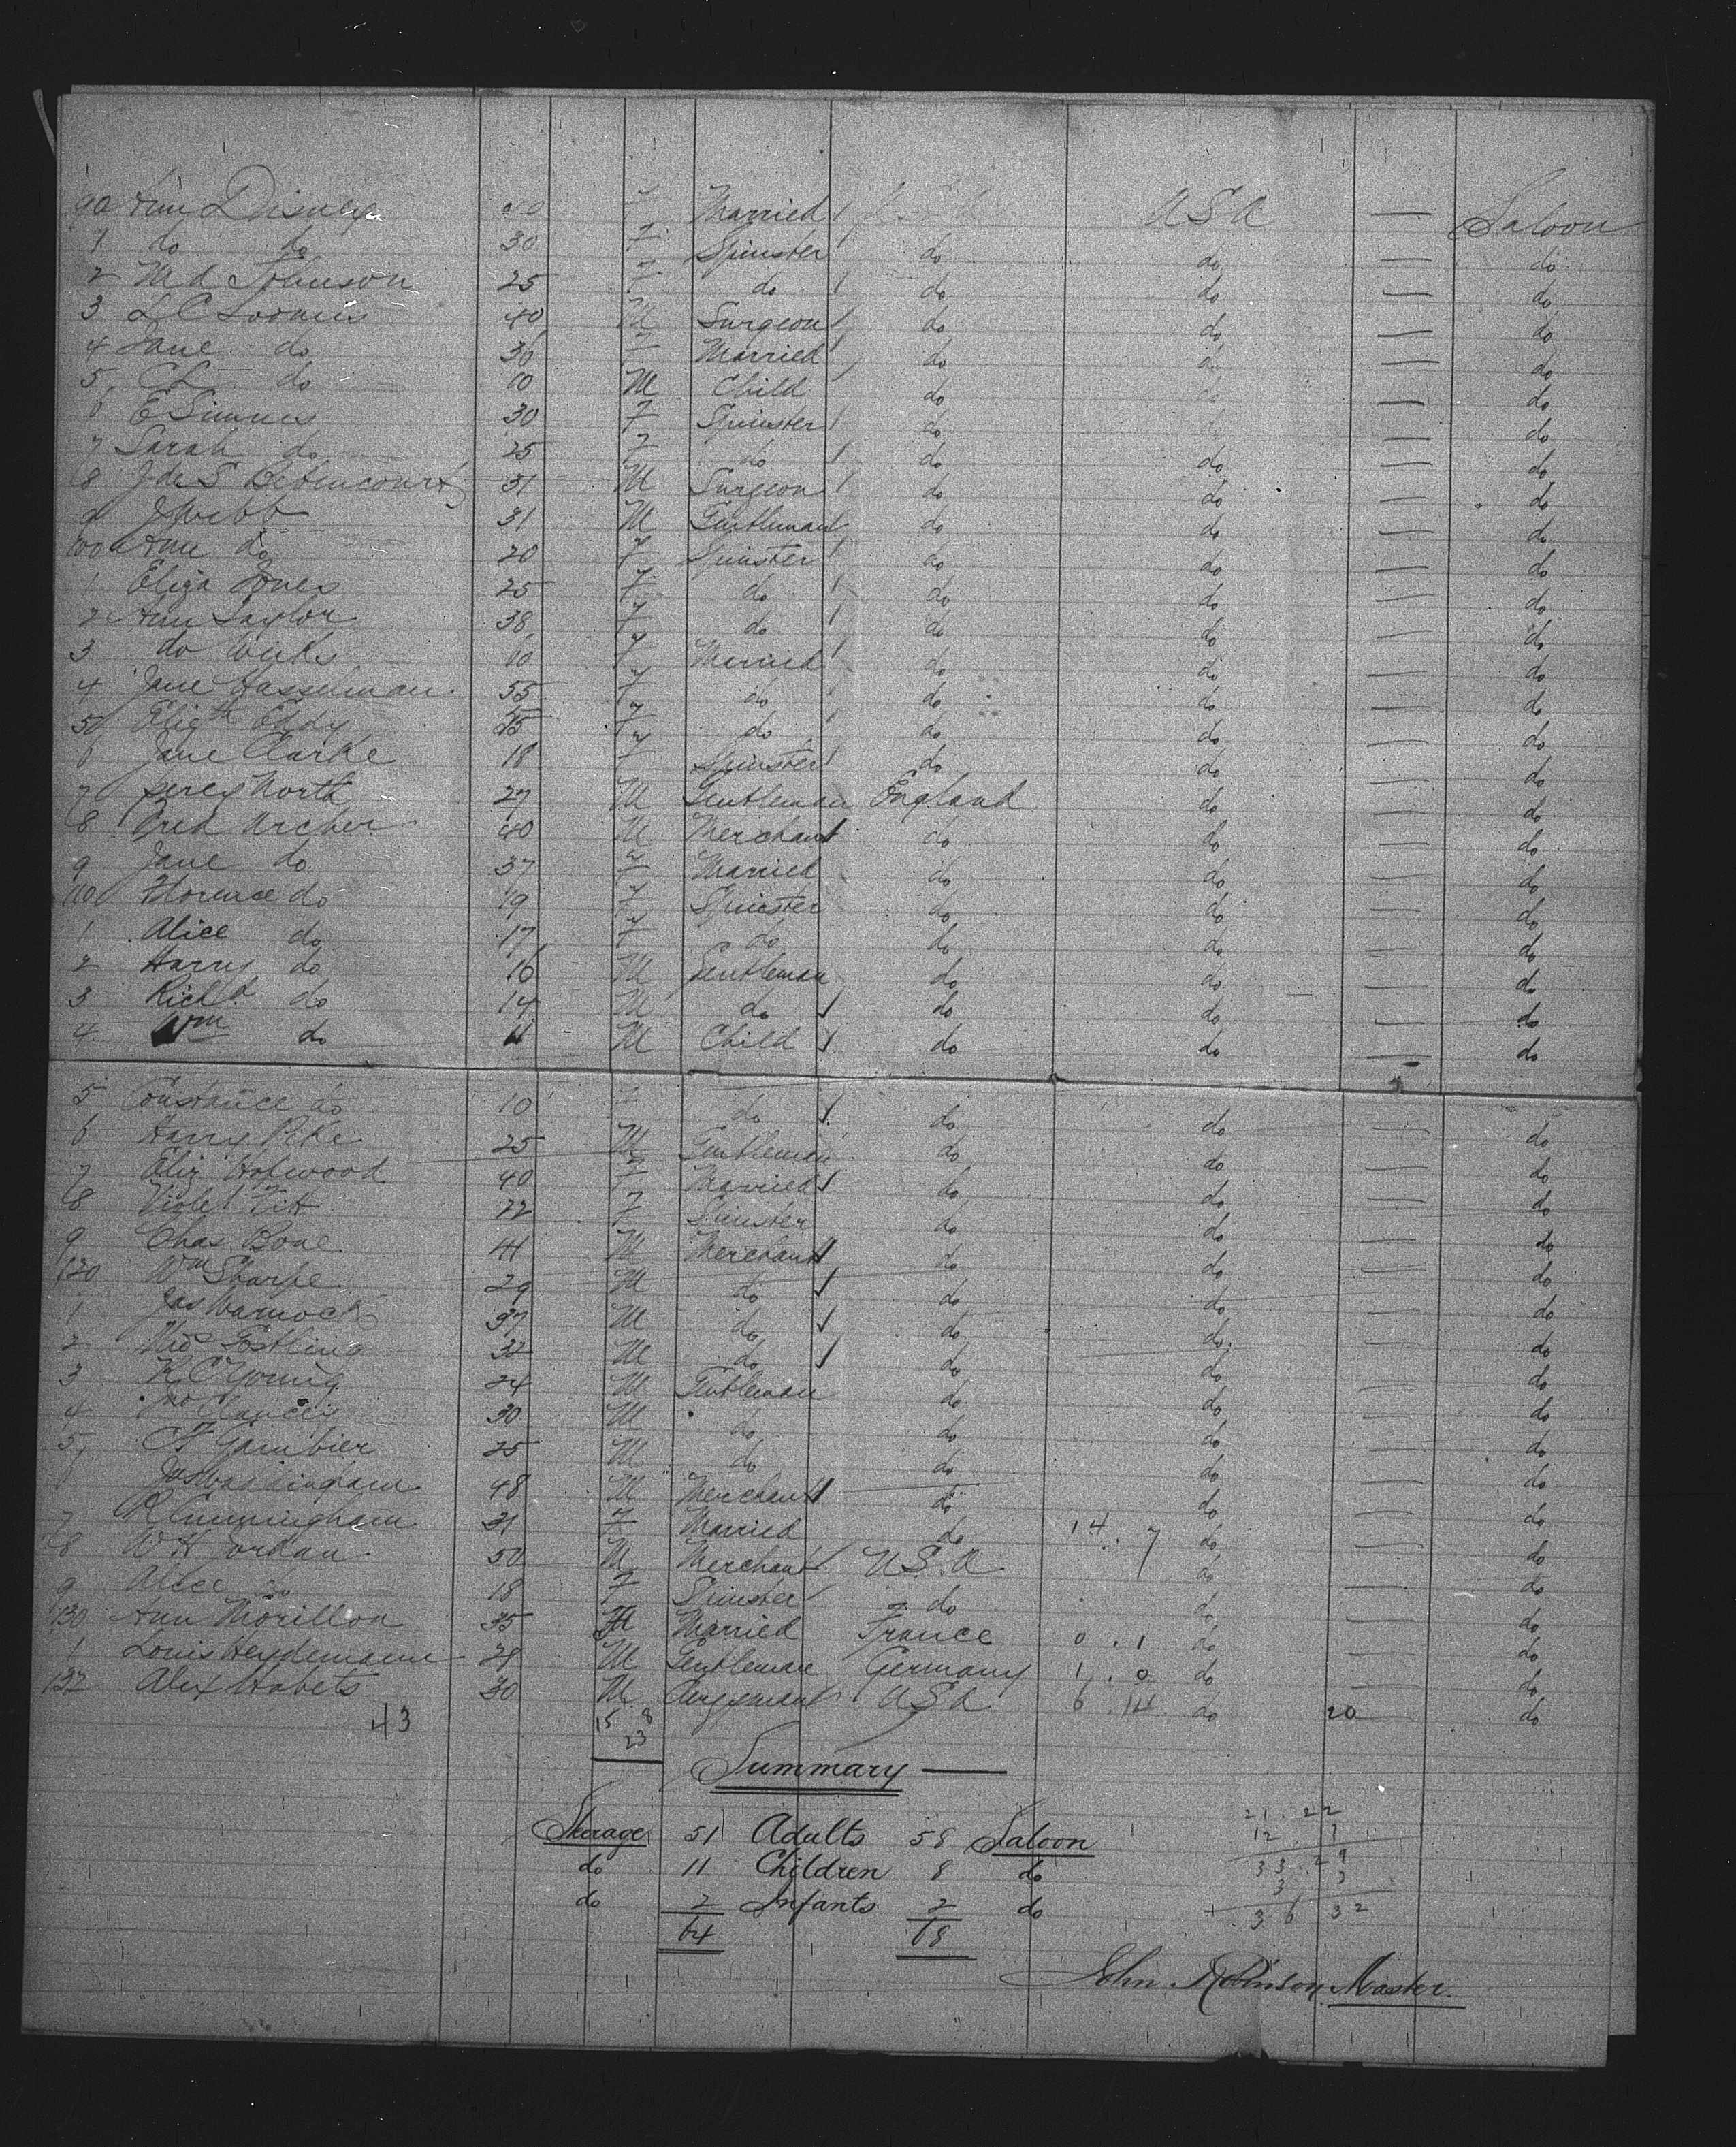 90 Ann Disney 40 F Married U S A U S A — Saloon
1 do do 30 F Spinster do do — do
2 M A Johnson 25 F do do do — do
3 L C Loomis 40 M Surgeon do do — do
4 Jane do 36 F Married do do — do
5 C L do 10 M Child do do — do
6 E Simms 30 F Spinster do do — do
7 Sarah do 25 F do do do — do
8 J de S Betencourt 31 M Surgeon do do — do
9 J Webb 31 M Gentleman do do — do
100 Ann do 20 F Spinster do do — do
1 Eliza Jones 25 F do do do — do
2 Ann Taylor 38 F do do do — do
3 do Weeks F Married do do — do
4 Jane Hasselman 55 F do do do — do
5 Elizth Eddy F do do do — do
6 Jane Clarke 18 F Spinster do do — do
7 Percy North 27 M Gentleman England do — do
8 Fred Archer 40 M Merchant do do — do
9 Jane do 37 F Married do do — do
110 Florence do 19 F Spinster do do — do
1 Alice do 17 F do do do — do
2 Harry do 16 M Gentleman do do — do
3 Richd do 14 M do do do — do
4 Wm do 11 M Child do do — do
5 Constance do 10 F do do do — do
6 Harry Pike 25 M Gentleman do do — do
7 Eliz Holwood 40 F Married do do — do
8 Violet Pitt 22 F Spinster do do — do
9 Chas Bone 41 M Merchant do do — do
120 Wm Sharpe 29 M do do do — do
1 Jas Warnock 37 M do do do — do
2 Gostling 32 M do do do — do
3 C Young 24 M Gentleman do do — do
4 Jno Clancey 30 M do do do — do
5 C F Gambier 25 M do do do — do
6 Jas 48 M Merchant do do — do
7 R Cunningham 31 F Married do 14 . 7 do — do
8 W H Jordan 50 M Merchant U.S.A do — do
9 Alice do 18 F Spinster do do — do
130 Ann Morillon 35 F Married France 0 . 1 do — do
1 Louis Heydemann 29 M Gentleman Germany 1 . 0 do — do
132 Alex Habets 30 M Clergyman U S A 6 . 14 do 20 — do
43 15 8
23
Summary
Steerage 51 Adults 58 Saloon
do 11 Children 8 do
do 2 Infants 2 do
64 68
21 . 22
12 7
33 . 29
3 3
36 32
John Robinson Master.